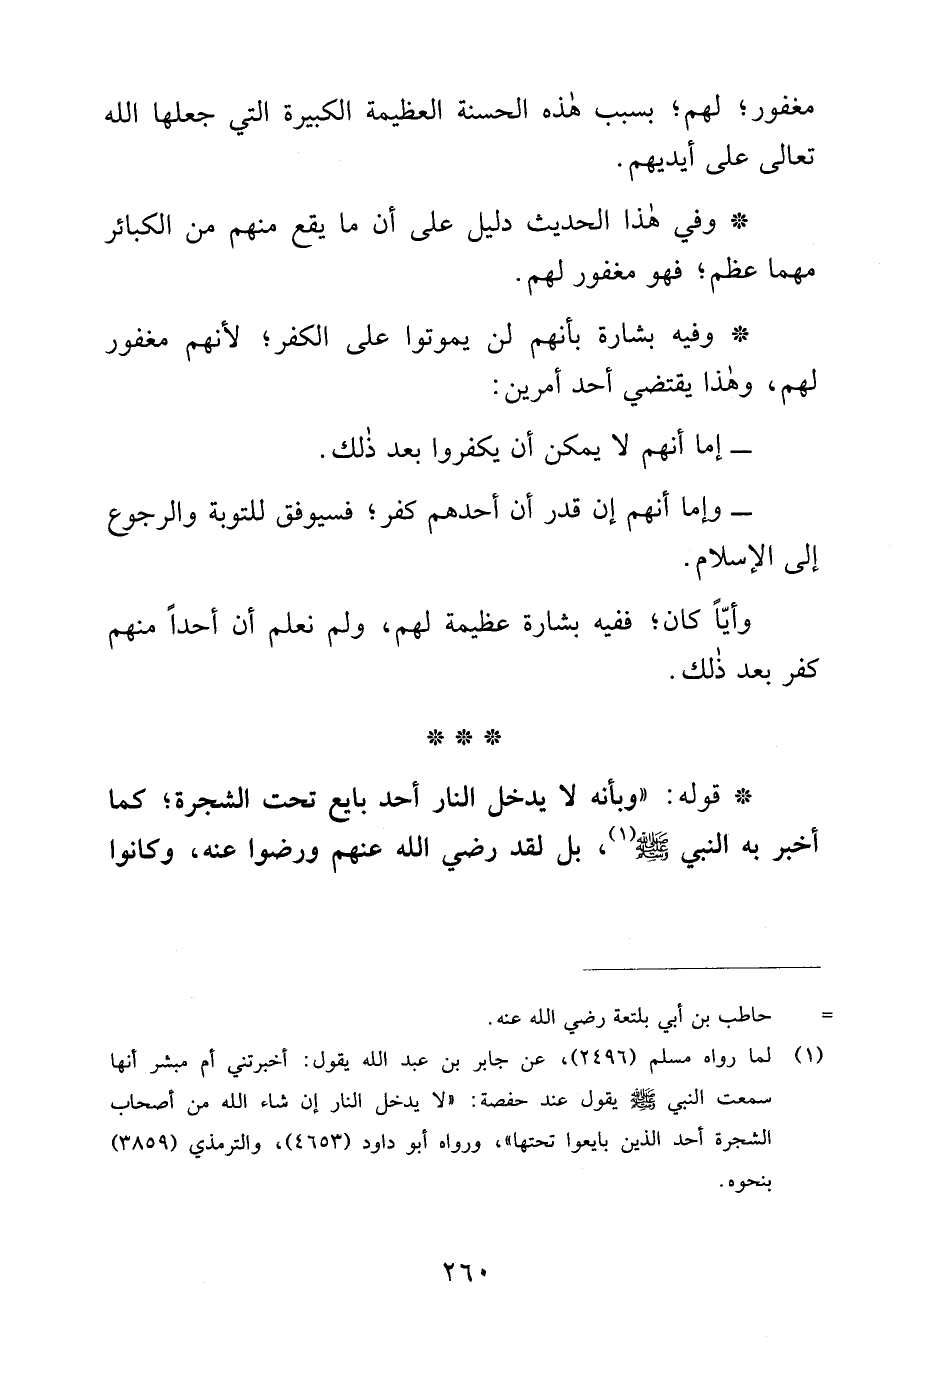 مغفور؛ لهم؛ بسبب هٰذه الحسنة العظيمة الكبيرة التي جعلها الله
تعالى على أيديهم.
* وفي هٰذا الحديث دليل على أن ما يقع منهم من الكبائر
مهما عظم؛ فهو مغفور لهم.
* وفيه بشارة بأنهم لن يموتوا على الكفر؛ لأنهم مغفور
لهم، وهٰذا يقتضي أحد أمرين:
ـ إما أنهم لا يمكن أن يكفروا بعد ذٰلك.
ـ وإما أنهم إن قدر أن أحدهم كفر؛ فسيوفق للتوبة والرجوع
إلى الإسلام.
وأيّاً كان؛ ففيه بشارة عظيمة لهم، ولم نعلم أن أحداً منهم
كفر بعد ذٰلك.
* * *
* قوله: «وبأنه لا يدخل النار أحد بايع تحت الشجرة؛ كما
أخبر به النبي ﷺ(١)، بل لقد رضي الله عنهم ورضوا عنه، وكانوا
= حاطب بن أبي بلتعة رضي الله عنه.
(١) لما رواه مسلم (٢٤٩٦)، عن جابر بن عبد الله يقول: أخبرتني أم مبشر أنها
سمعت النبي ﷺ يقول عند حفصة: «لا يدخل النار إن شاء الله من أصحاب
الشجرة أحد الذين بايعوا تحتها»، ورواه أبو داود (٤٦٥٣)، والترمذي (٣٨٥٩)
بنحوه.
٢٦٠